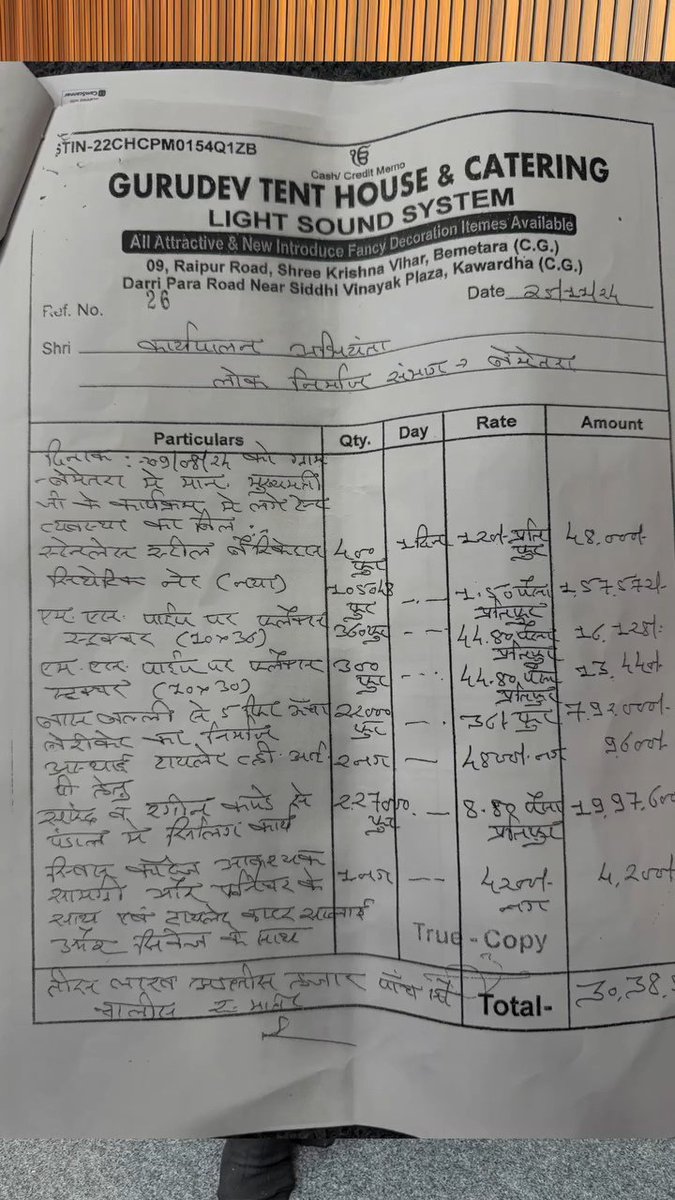 CamScanner
STIN-22CHCPM0154Q1ZB
ੴ
Cash/ Credit Memo
GURUDEV TENT HOUSE & CATERING
LIGHT SOUND SYSTEM
All Attractive & New Introduce Fancy Decoration Itemes Available
09, Raipur Road, Shree Krishna Vihar, Bemetara (C.G.)
Darri Para Road Near Siddhi Vinayak Plaza, Kawardha (C.G.)
Ref. No. 26 Date 25/11/24
Shri कार्यपालन अभियंता
लोक निर्माण संभाग बेमेतरा
Particulars Qty. Day Rate Amount
दिनांक : 09/08/24 को ग्राम
बेमेतरा में मान. मुख्यमंत्री
जी के कार्यक्रम में लगे टेन्ट
व्यवस्था का बिल :
स्टेनलेस स्टील बैरिकेट्स 400 फुट 1 दिन 120/- प्रति फुट 48,000/-
सिंथेटिक नेट (नया) 105048 फुट 1.50 पैसा प्रतिफुट 1,57,572/-
एम.एस. पाईप पर फ्लैक्स 360 फुट 44.80 पैसा प्रतिफुट 16,128/-
स्ट्रक्चर (10x36)
एम.एस. पाईप पर फ्लैक्स 300 फुट 44.80 पैसा प्रतिफुट 13,440/-
स्ट्रक्चर (10x30)
बांस बल्ली से 5 फिट ऊँचा 22000 फुट 36/ फुट 7,92,000/-
बेरीकेट का निर्माण
अस्थाई टायलेट व्ही.आई. 2 नग 4800/- नग 9600/-
पी हेतु
सफेद व रंगीन कपड़े से 2,27000 फुट 8.80 पैसा प्रतिफुट 19,97,600
पंडाल में सिलिंग कार्य
स्विस कॉटेज आवश्यक 1 नग 4200/- नग 4,200/-
सामग्री और फर्नीचर के
साथ एवं टायलेट वाटर सप्लाई
ड्रेनेज के साथ
True - Copy
तीस लाख अड़तीस हजार पाँच सौ Total- 30,38,5
चालीस रु. मात्र